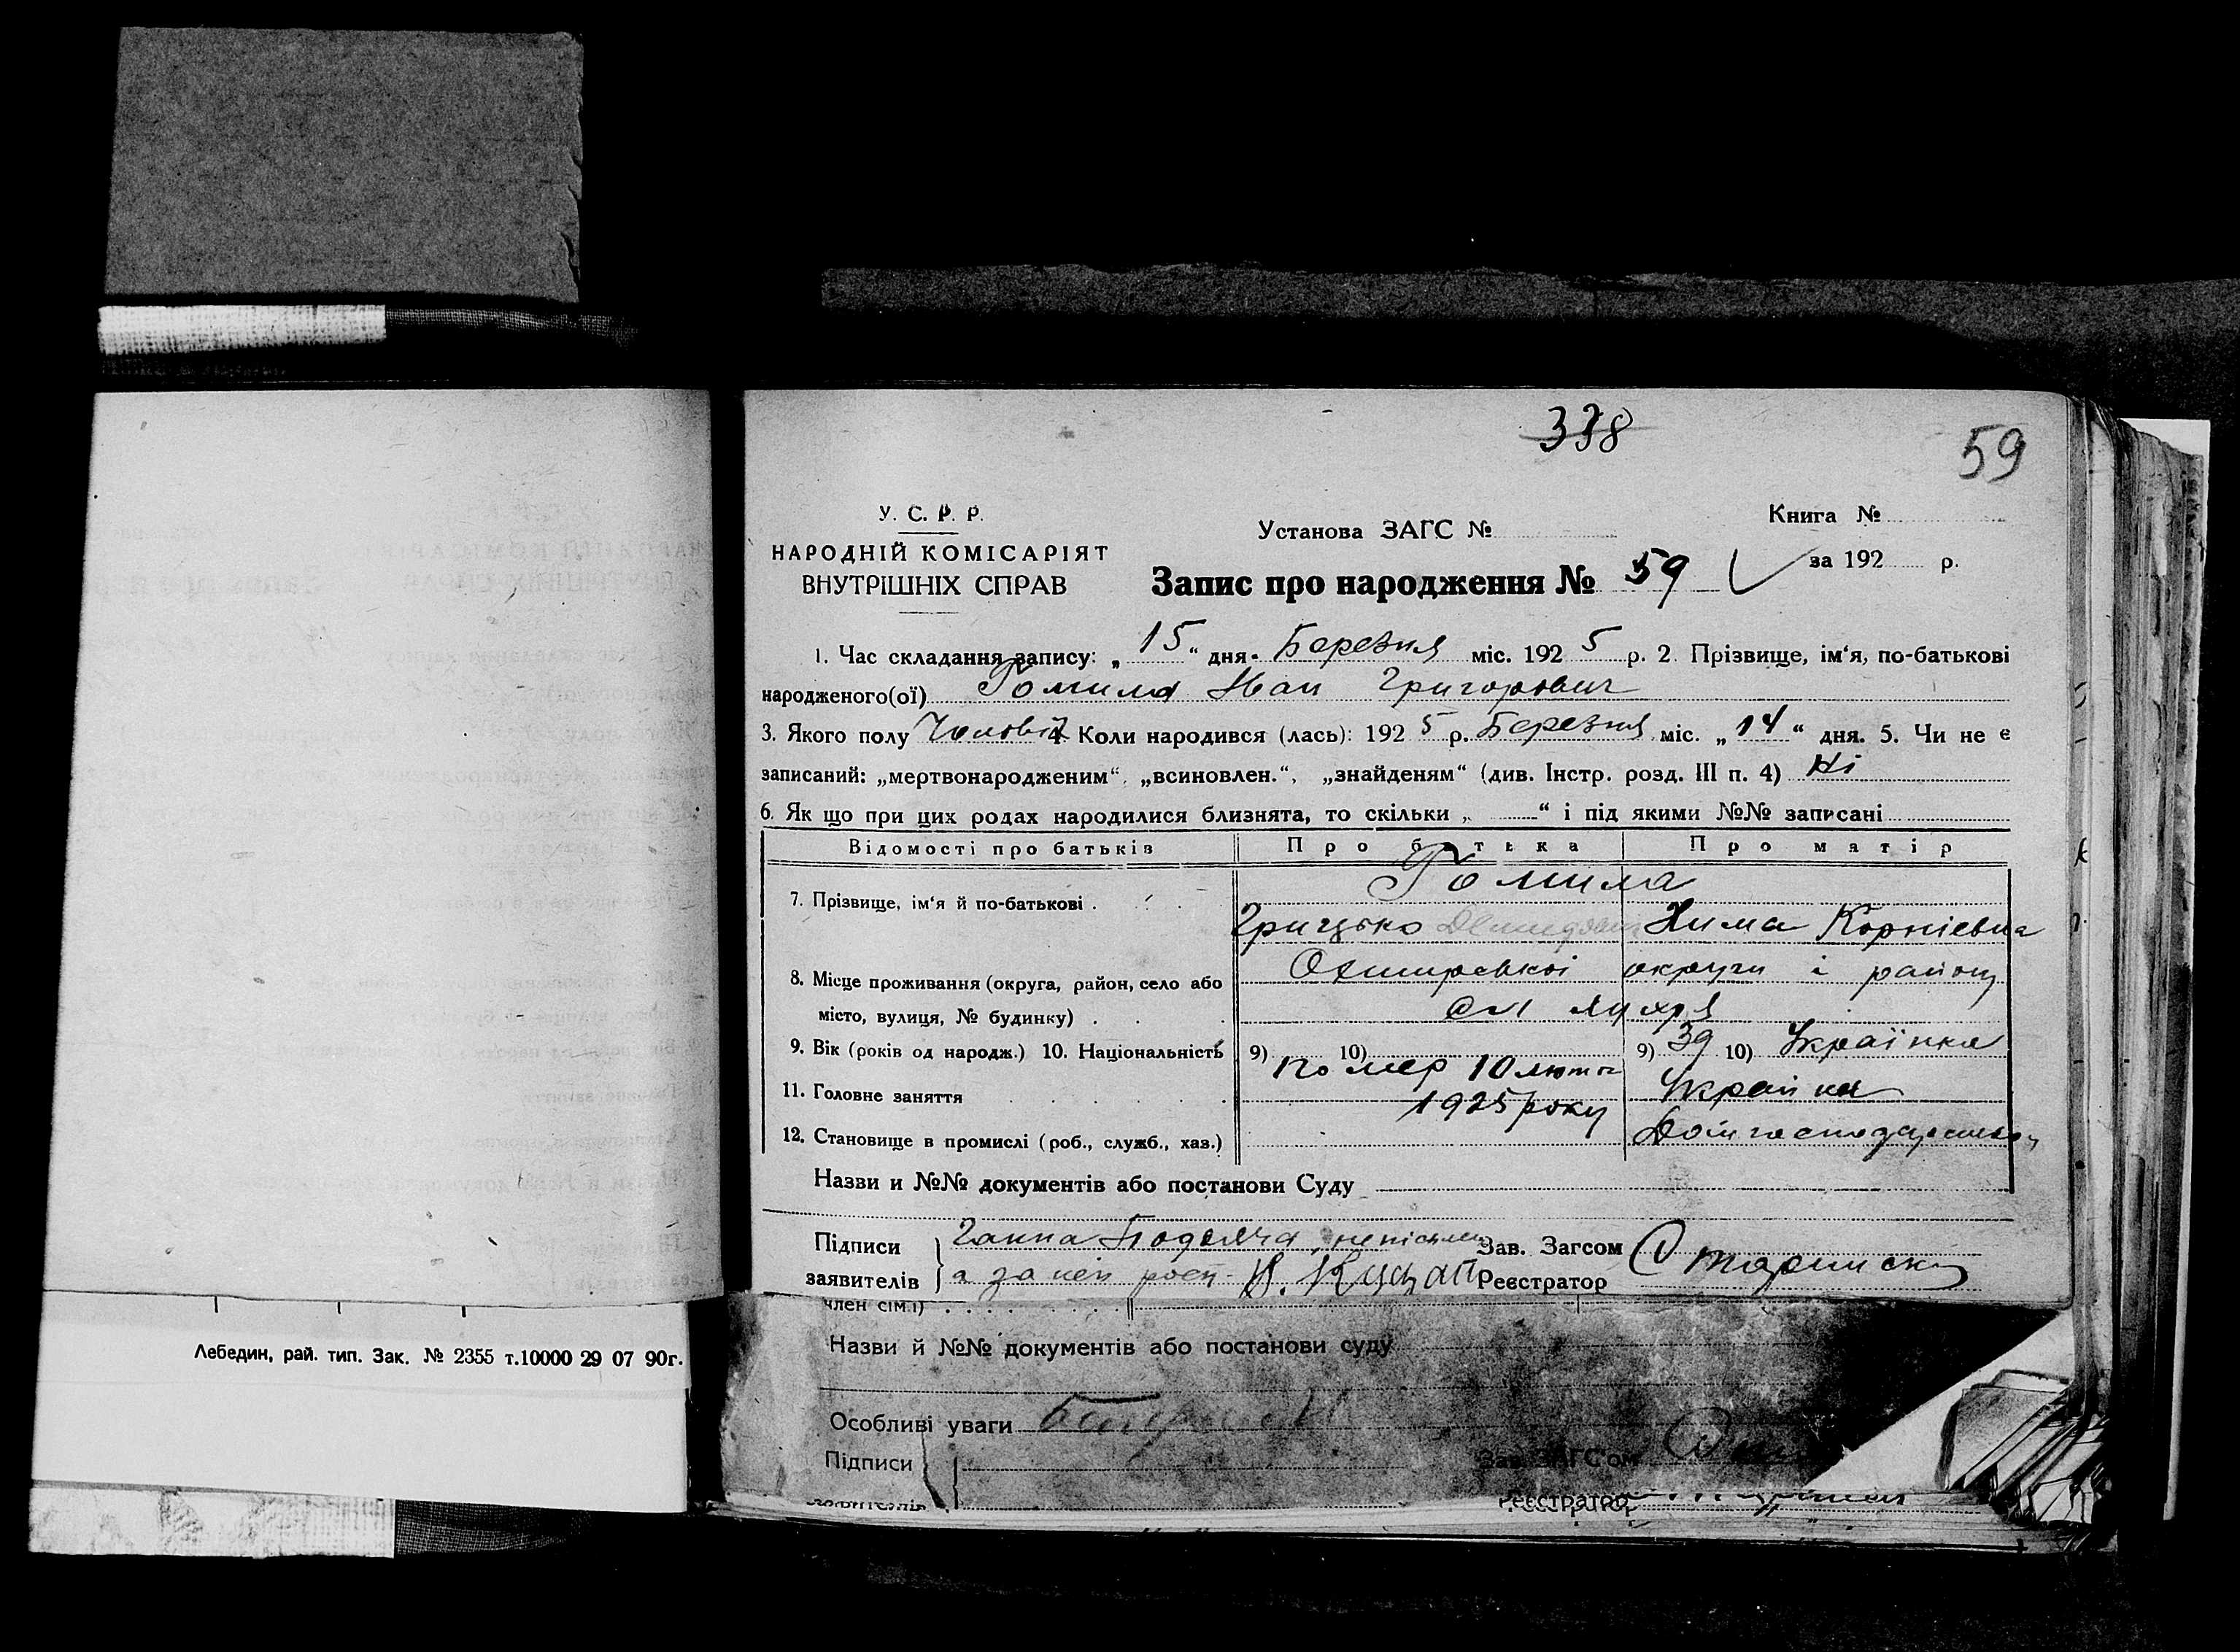 338
59
У. С. Р. Р.
НАРОДНІЙ КОМІСАРІЯТ
ВНУТРІШНІХ СПРАВ
Установа ЗАГС №
Книга №
за 192 р.
Запис про народження № 59
1. Час складання запису: „ 15 “ дня Березня міс. 192 5 р. 2. Прізвище, ім‘я, по-батькові
народженого(ої) Гомила Іван Григорович
3. Якого полу Чоловіч 4. Коли народився (лась): 192 5 р. Березня міс. „ 14 “ дня. 5. Чи не є
записаний: „мертвонародженим“, „всиновлен.“, „знайденям“ (див. Інстр. розд. III п. 4) Ні
6. Як що при цих родах народилися близнята, то скільки „ “ і під якими №№ записані
Відомості про батьків Про батька Про матір
7. Прізвище, ім‘я й по-батькові . Гомила
Грицько Демидович Хима Корнієвна
8. Місце проживання (округа, район, село або Охтирської округи і району
місто, вулиця, № будинку) .
9. Вік (років од народж.) 10. Національність 9) 10) 9) 39 10) Українка
Помер 10 лютого
11. Головне заняття Україна
1925 року
12. Становище в промислі (роб., служб., хаз.)
Назви и №№ документів або постанови Суду
Підписи Ганна неписьмен Зав. Загсом
заявителів а за неї росп. Реєстратор
член сім.і)
Назви й №№ документів або постанови суду
Особливі уваги
Підписи Зав. ЗАГС‘ом
заявителів Реєстратор
Лебедин, рай. тип. Зак. № 2355 т.10000 29 07 90г.